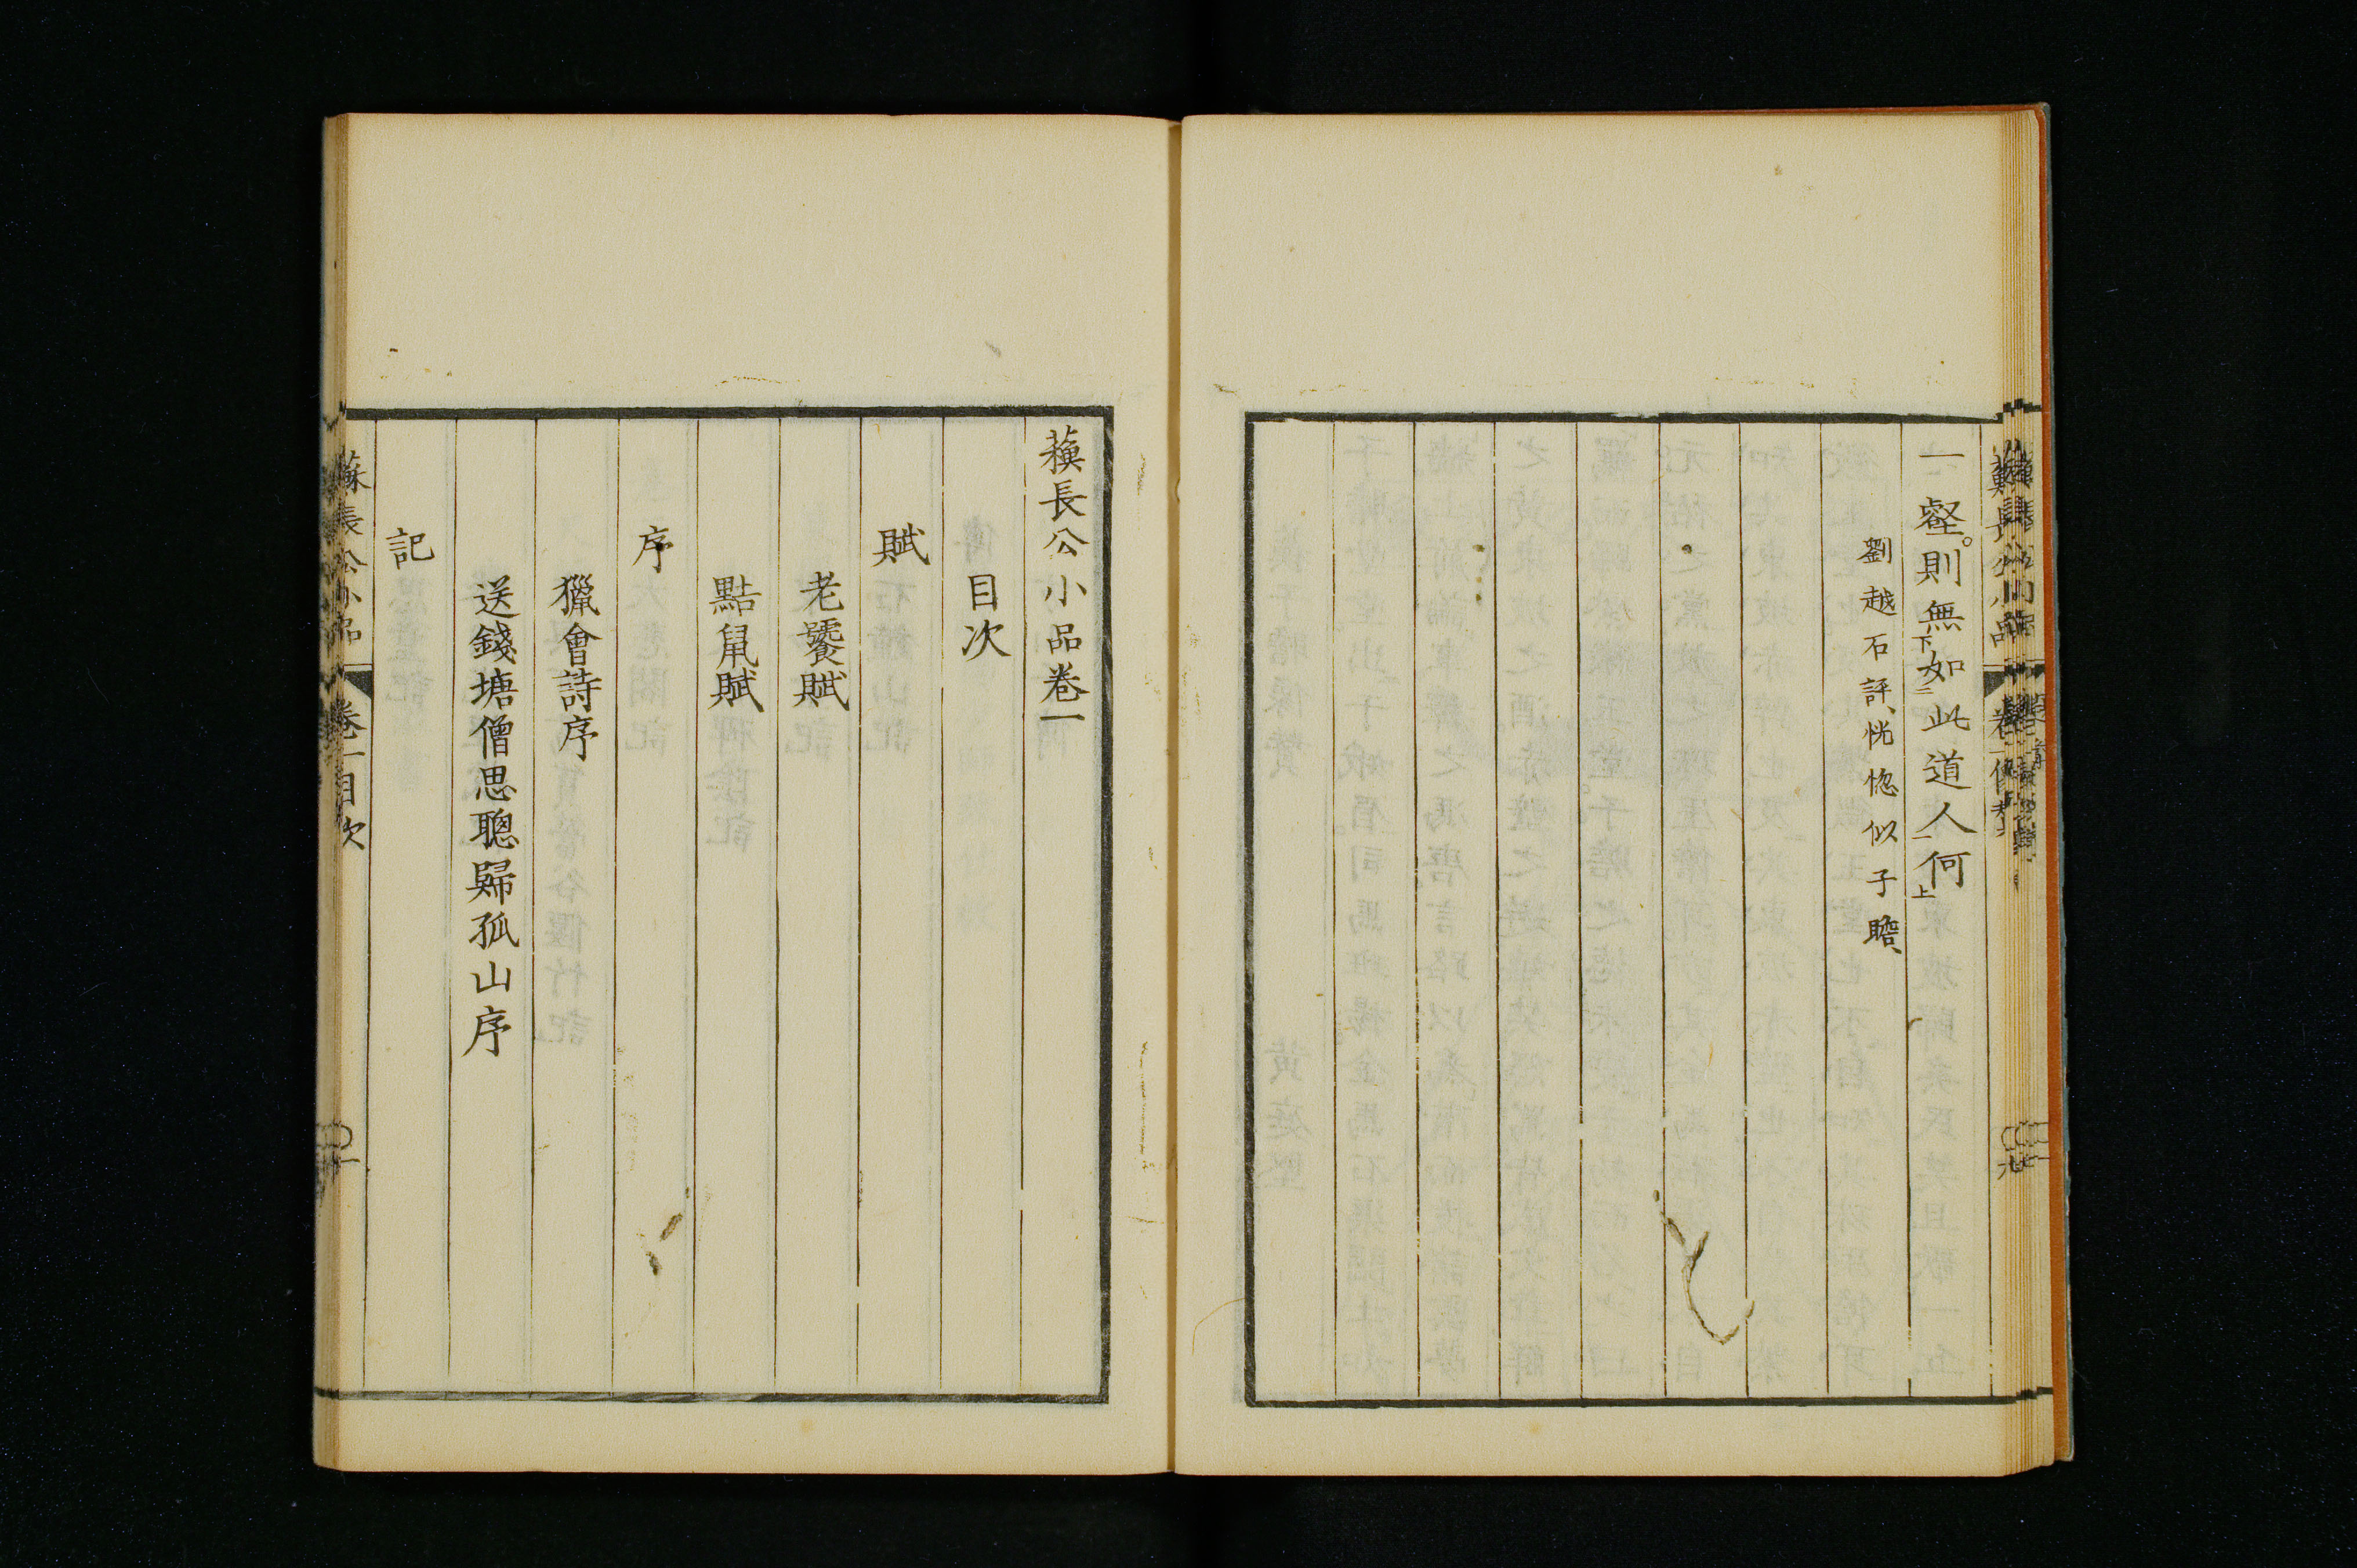 一壑則無如此道人何
劉越石評恍惚似子瞻
蘓長公小品卷一
目次
賦
老饕賦
黠鼠賦
序
獵會詩序
送錢塘僧思聰歸孤山序
記
蘇長公小品 卷一目次 一